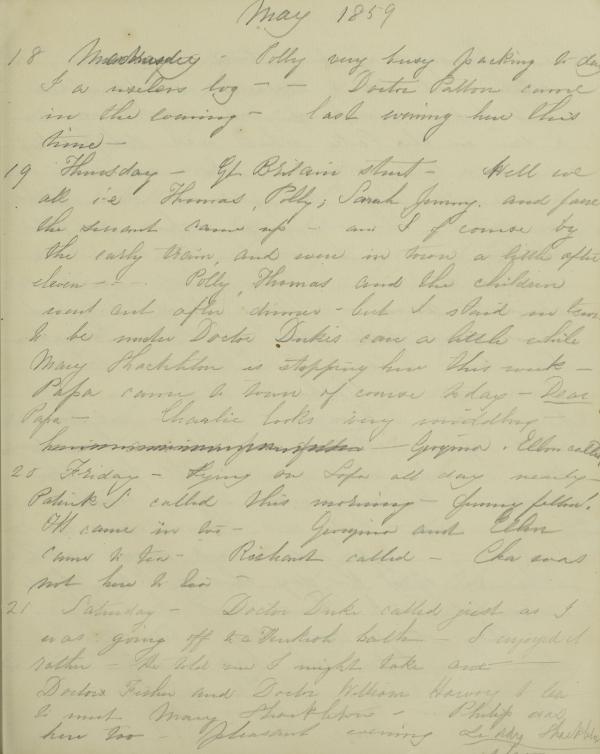 May 1859
18 Wednesday - Polly very busy packing to day
I a useless log - - Doctor Patton came
in the evening - last evening here this
time -
19 Thursday - Gt Britain St - Well we
all i.e Thomas, Polly, Sarah Jenny. and Jane
the servant came up - am I of course by
the early train, and were in town a little after
eleven - - - Polly, Thomas and the children
went out after dinner - but I staid in town
to be under Doctor Duke's care a little while
Mary Shackleton is stopping here this week -
Papa came to town of course to day - Dear
Papa - Charlie looks very middling
- Georgina . Ellen called
20 Friday - Lying on Sofa all day nearly -
Patrick S called this morning - funny fellow.
came in too - Georgina and Ellen
came to tea - Richard called - Cha was
not here to tea -
21 Saturday - Doctor Duke called just as I
was going off to a Turkish bath - I enjoyed it
rather - He told me I might take one
Doctors Fisher and Doctor William Harvey to tea
to meet Mary Shackleton - Philip was
here too - pleasant evening Shackleton